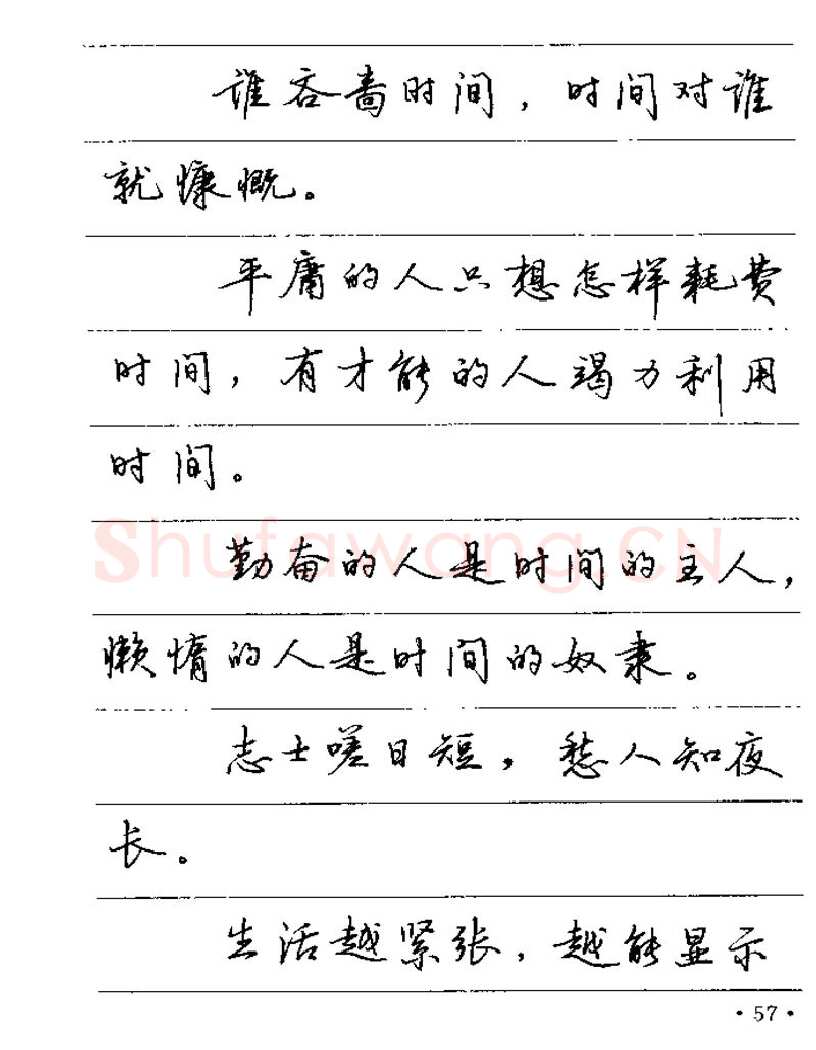 谁吝啬时间，时间对谁
就慷慨。
平庸的人只想怎样耗费
时间，有才能的人竭力利用
时间。
Shufawang.CN
勤奋的人是时间的主人，
懒惰的人是时间的奴隶。
志士嗟日短，愁人知夜
长。
生活越紧张，越能显示
·57·